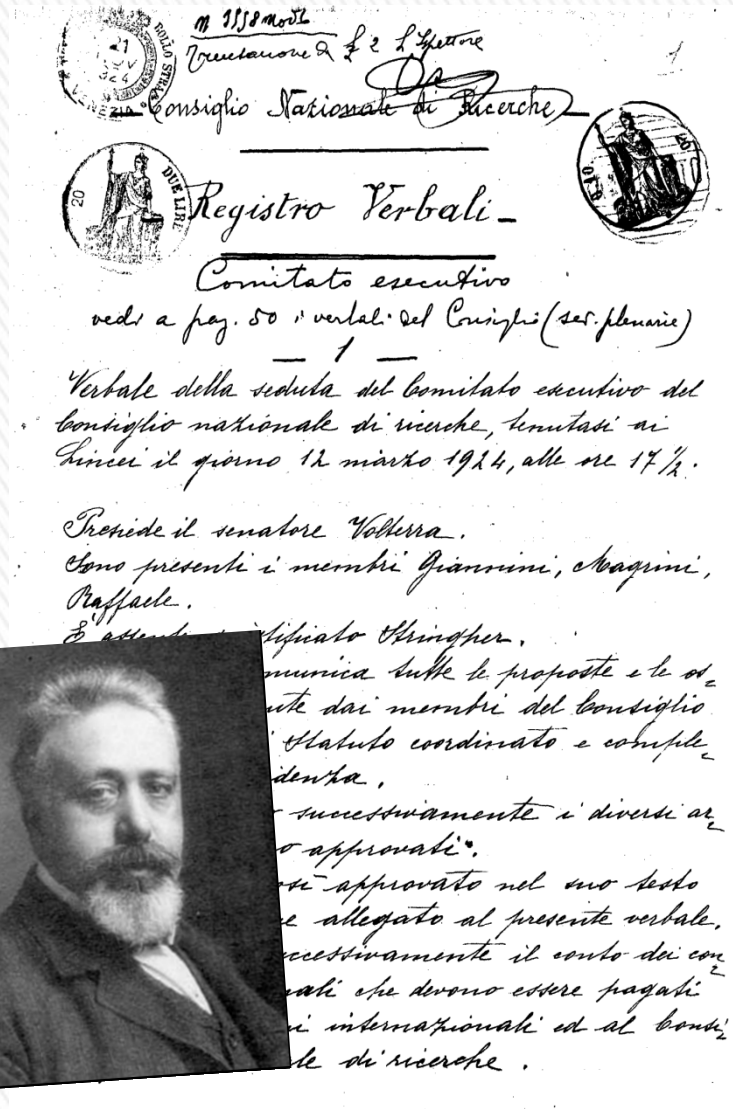 n 1558 mod 2
L'Ispettore
21
NOV
924
BOLLO STRA
VENEZIA
Consiglio Nazionale di Ricerche
20
DUE LIRE
Registro Verbali
Comitato esecutivo
vedi a pag. 50 i verbali del Consiglio (sed. plenarie)
1
Verbale della seduta del Comitato esecutivo del
Consiglio nazionale di ricerche, tenutasi ai
Lincei il giorno 12 marzo 1924, alle ore 17 ½.
Presiede il senatore Volterra.
Sono presenti i membri Giannini, Magrini,
Raffaele.
È assente giustificato Stringher.
munica tutte le proposte e le os=
ute dai membri del Consiglio
Statuto coordinato e comple=
denza.
successivamente i diversi ar=
o approvati".
osì approvato nel suo testo
e allegato al presente verbale.
ccessivamente il conto dei con=
uali che devono essere pagati
ni internazionali ed al Consi=
le di ricerche.